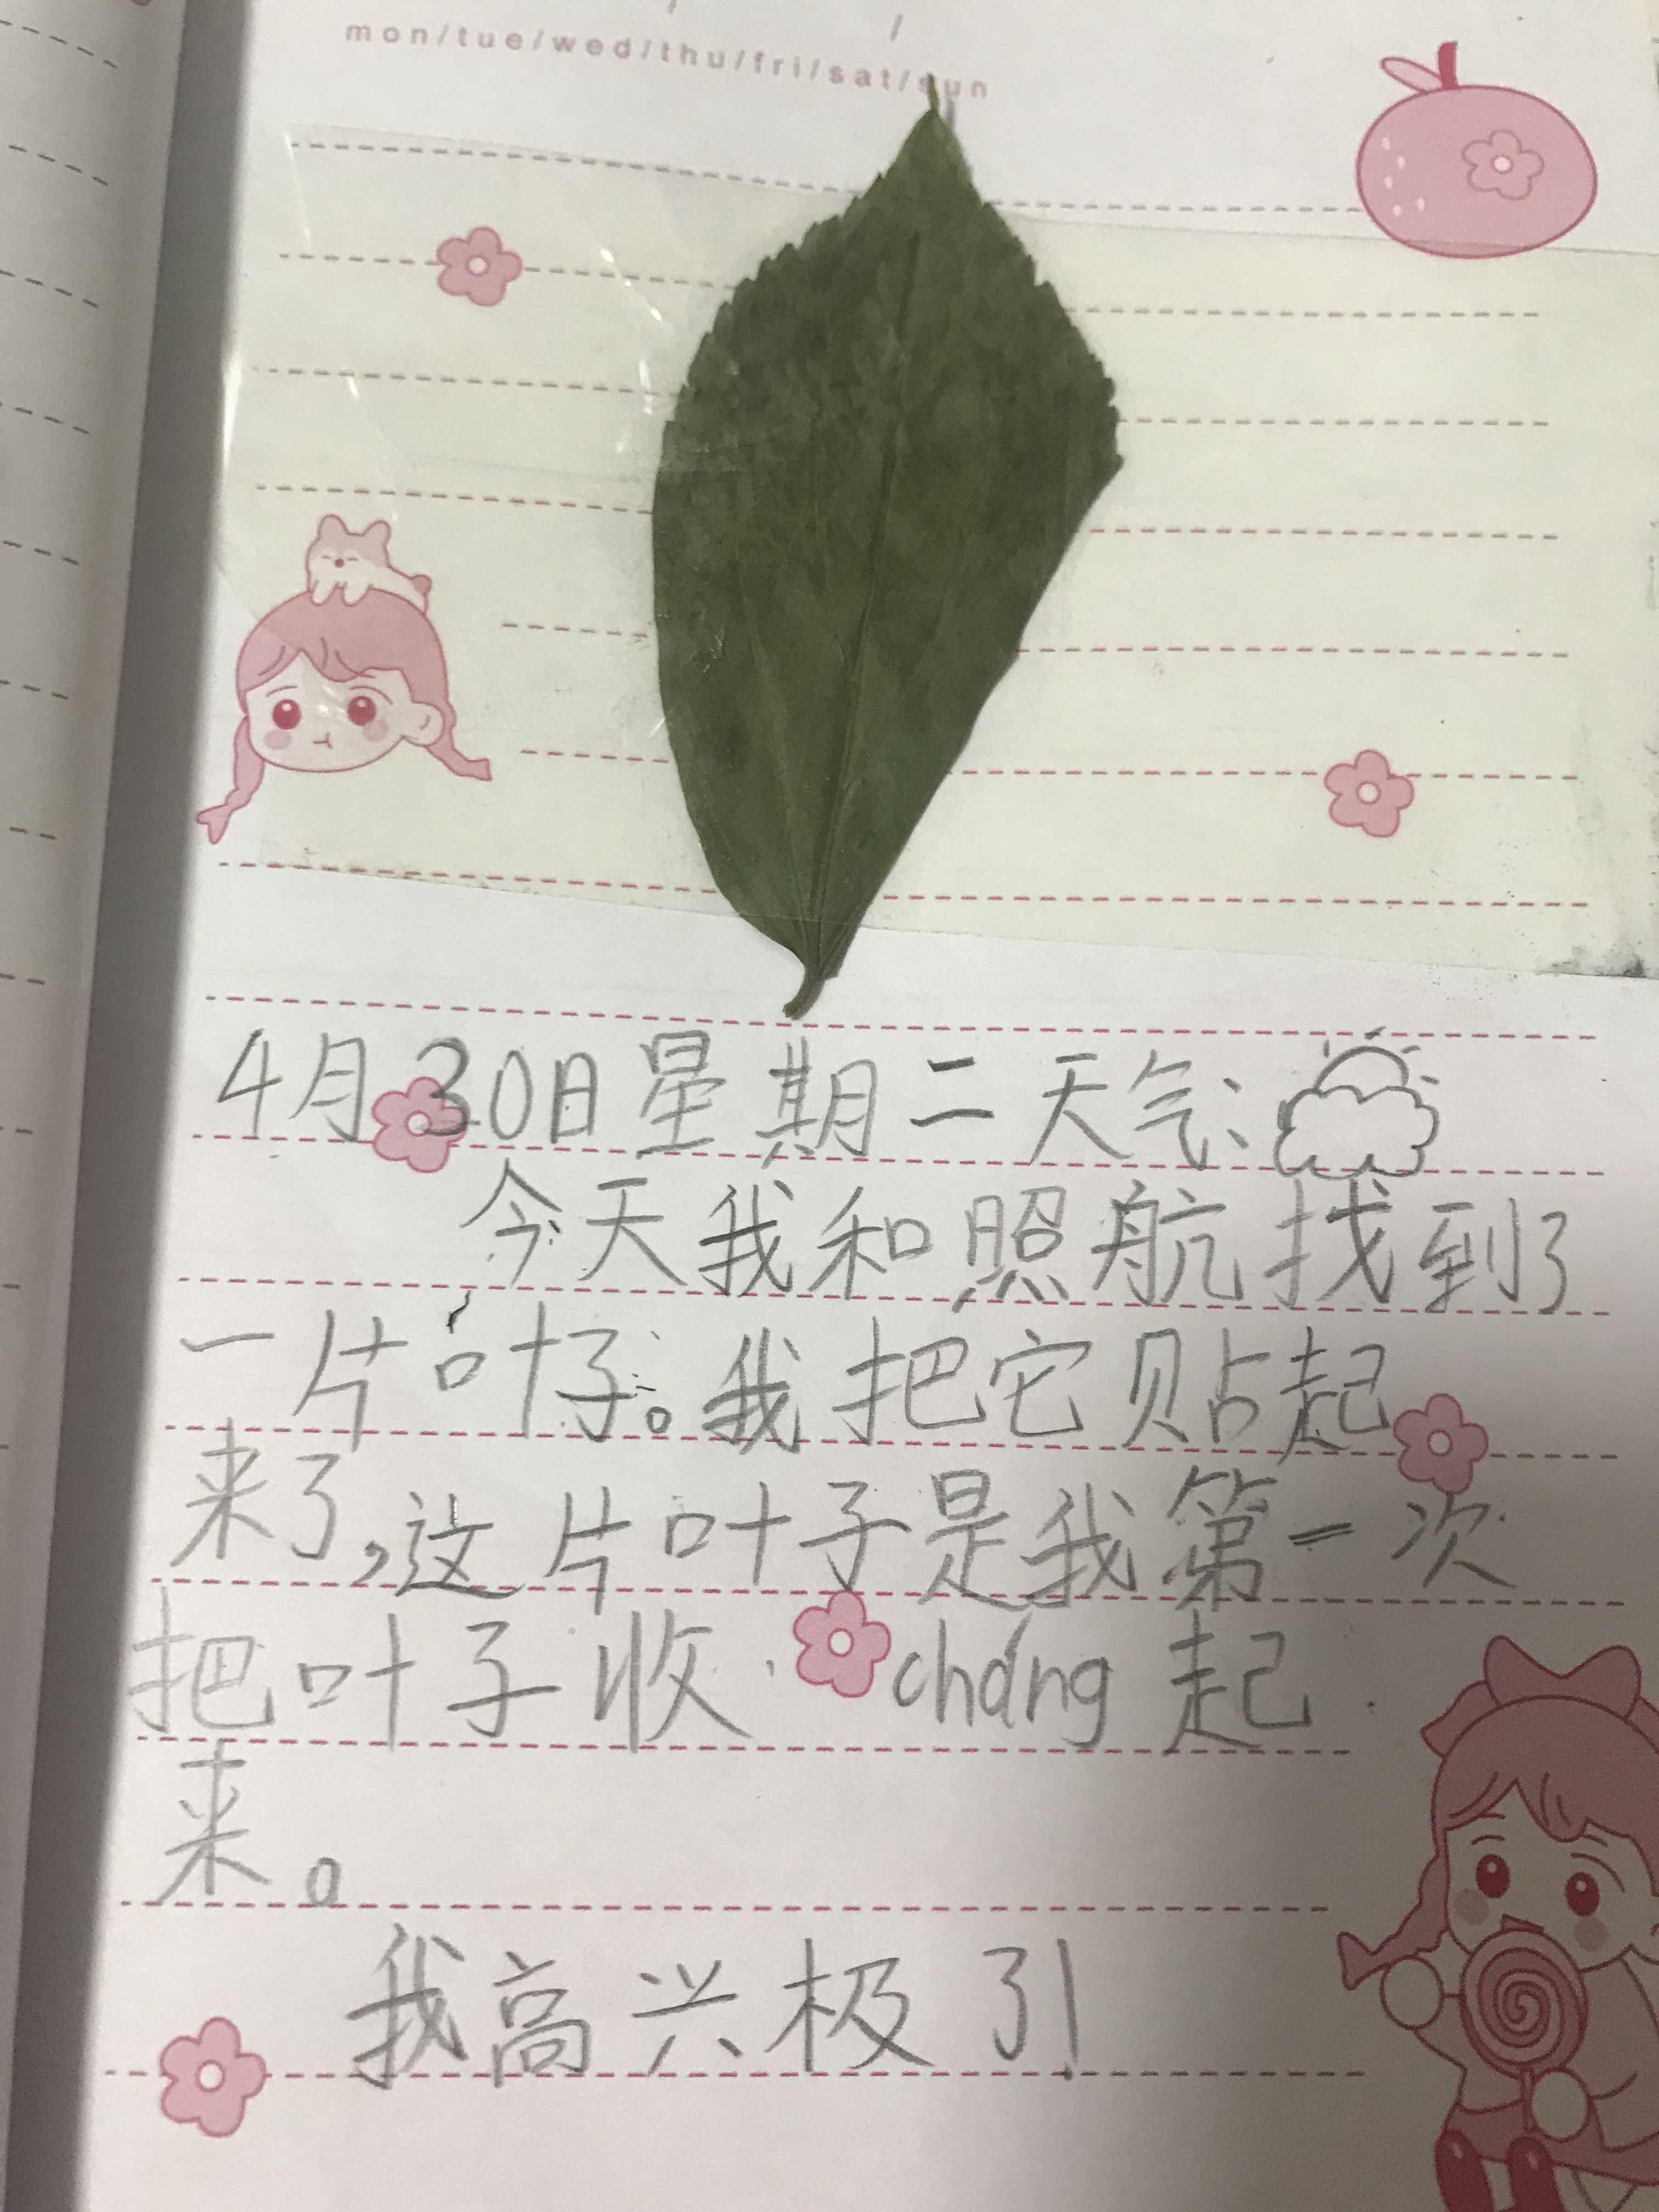 mon/tue/wed/thu/fri/sat/sun
4月30日星期二天气:
今天我和照航找到了
一片叶子。我把它贴起
来了,这片叶子是我第一次
把叶子收cháng起
来。
我高兴极了!